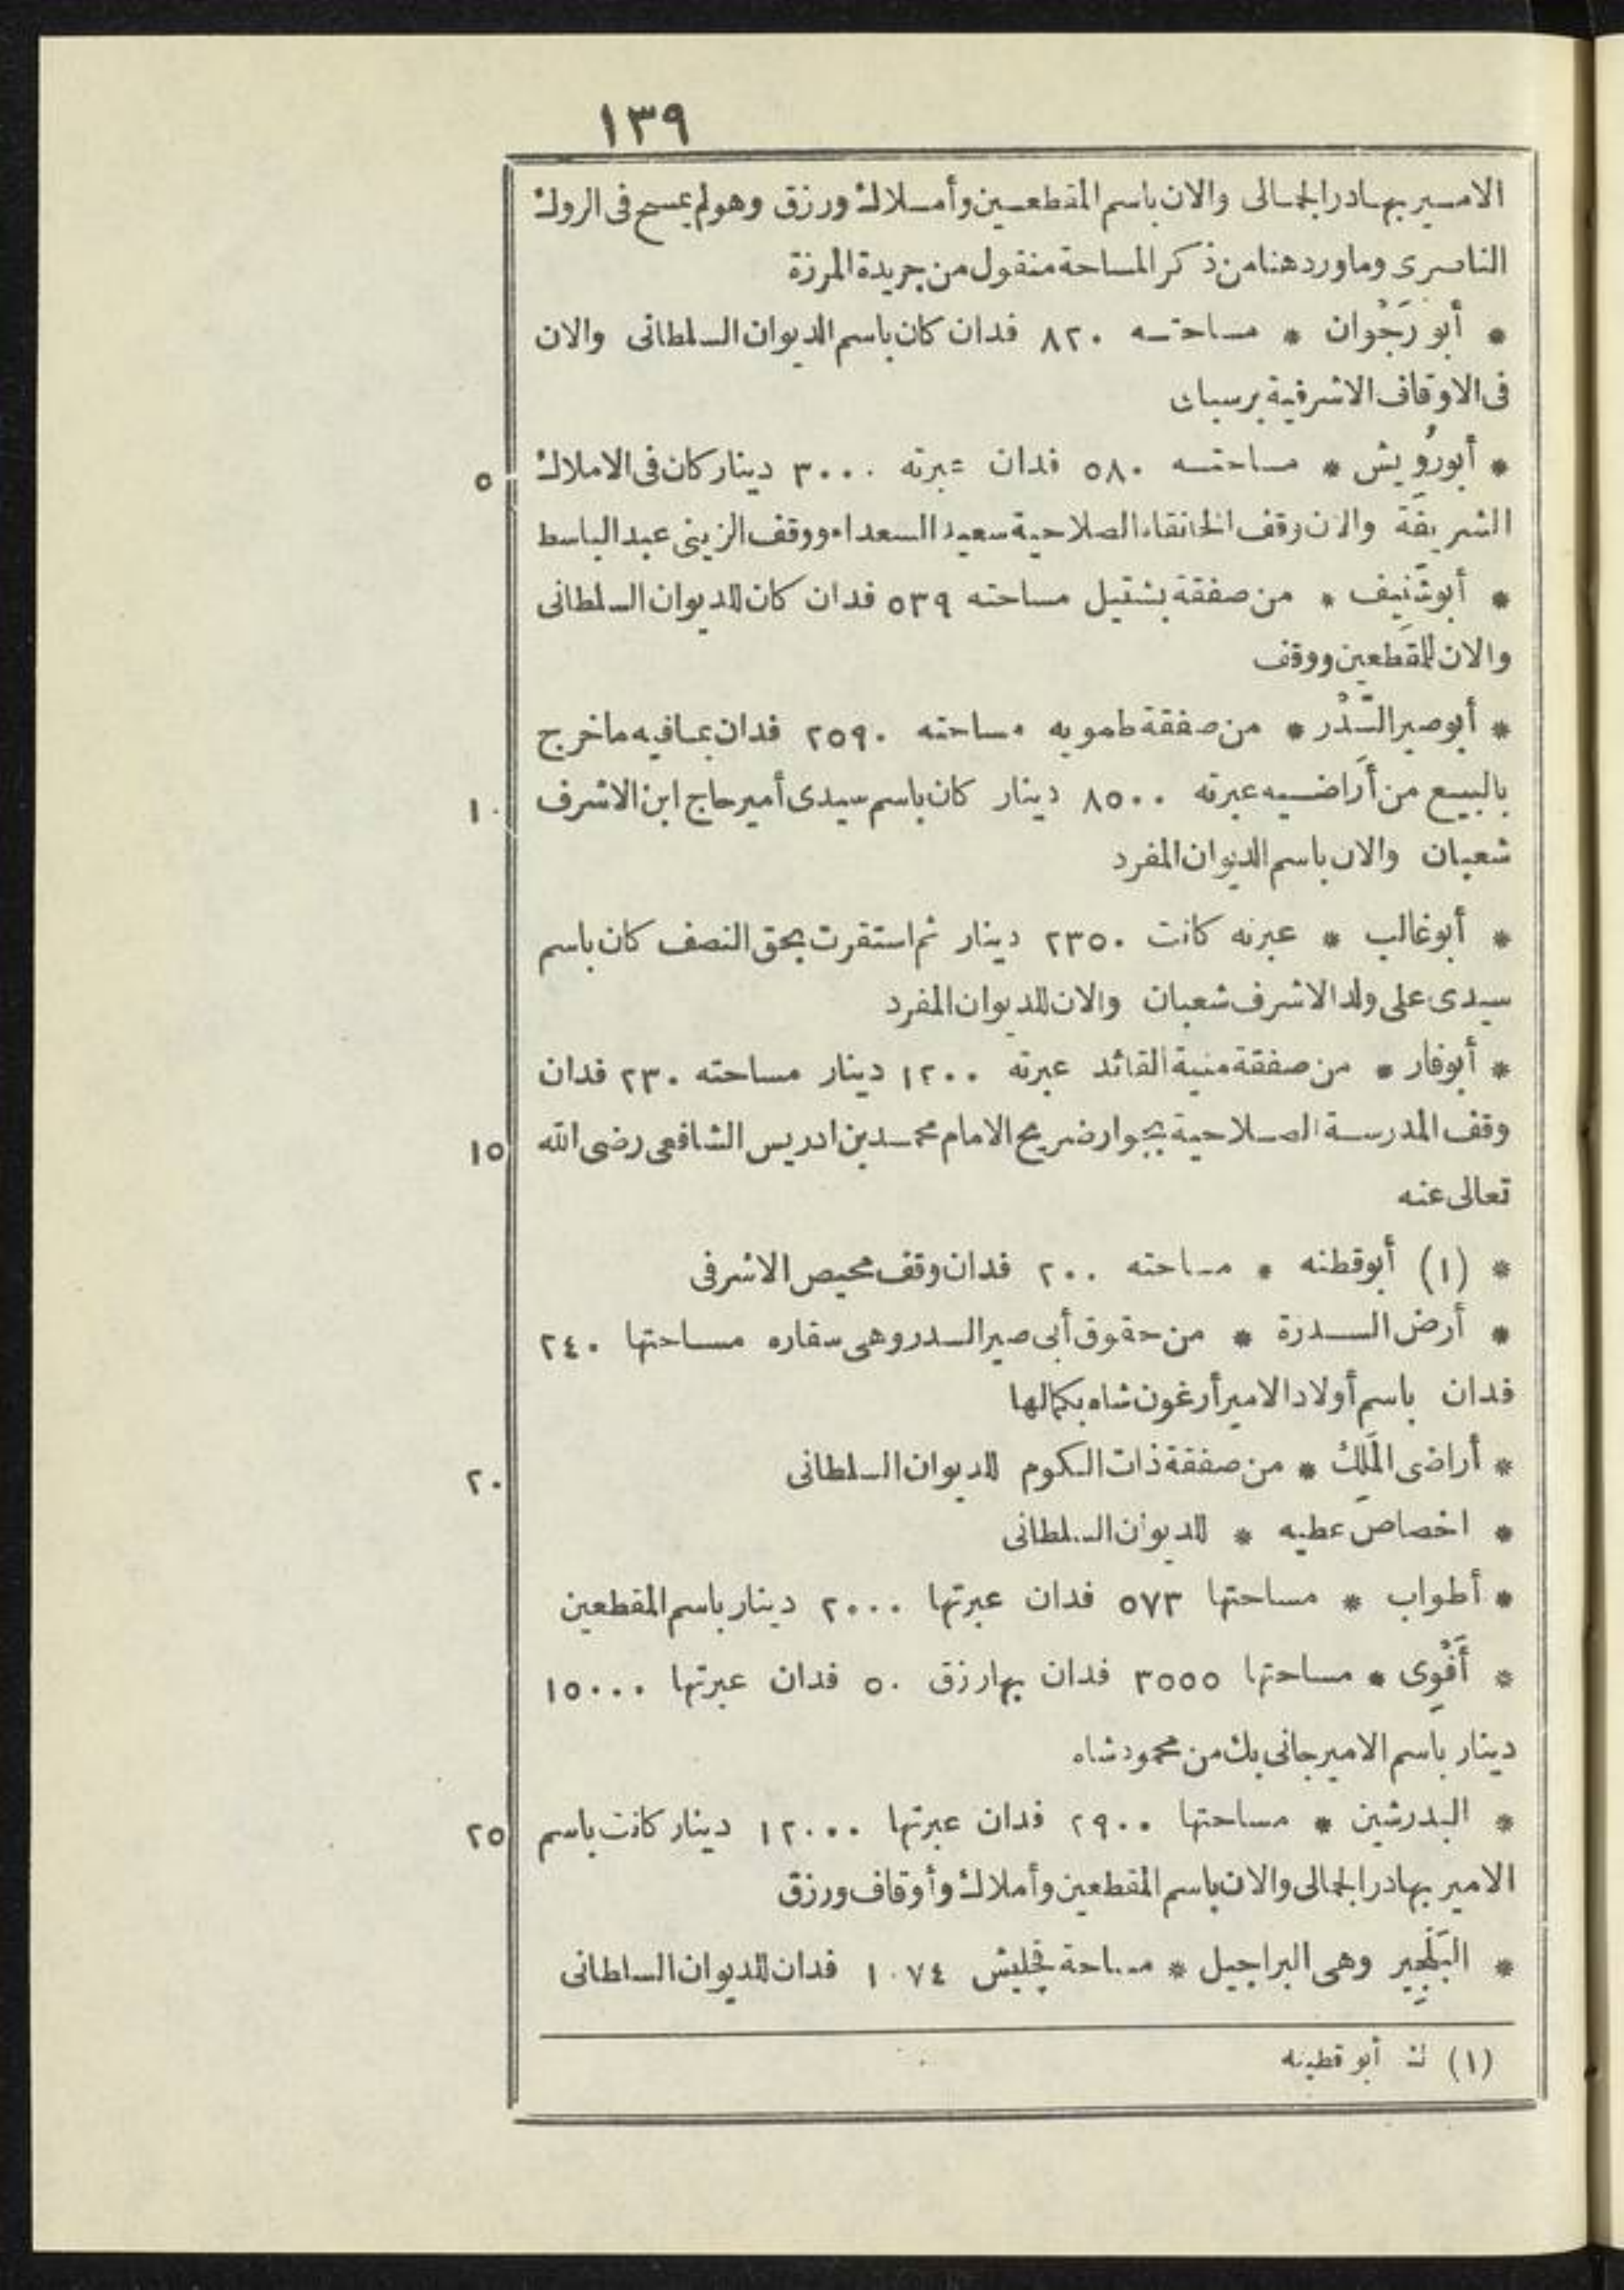 ١٣٩
الامير بهادر الجمالى والان باسم المقطعين وأملاك ورزق وهو لم يمسح فى الروك
الناصرى وما ورد هنا من ذكر المساحة منقول من جريدة المرزة
* أبو رَجْوان * مساحته ٨٢٠ فدان كان باسم الديوان السلطانى والان
فى الاوقاف الاشرفية برسباى
* أبو رُوَيش * مساحته ٥٨٠ فدان عبرته ٣٠٠٠ دينار كان فى الاملاك ٥
الشريفة والان وقف الخانقاه الصلاحية سعيد السعداء ووقف الزينى عبد الباسط
* أبو شَنِيف * من صفقة بشتيل مساحته ٥٣٩ فدان كان للديوان السلطانى
والان للمقطعين ووقف
* أبو صير السِّدْر * من صفقة طمويه مساحته ٢٥٩٠ فدان بما فيه ما خرج
بالبيع من أراضيه عبرته ٨٥٠٠ دينار كان باسم سيدى أمير حاج ابن الاشرف ١٠
شعبان والان باسم الديوان المفرد
* أبو غالب * عبرته كانت ٢٣٥٠ دينار ثم استقرت بحق النصف كان باسم
سيدى على ولد الاشرف شعبان والان للديوان المفرد
* أبو فار * من صفقة منية القائد عبرته ١٢٠٠ دينار مساحته ٢٣٠ فدان
وقف المدرسة الصلاحية بجوار ضريح الامام محمد بن ادريس الشافعى رضى الله ١٥
تعالى عنه
* (١) أبو قطنه * مساحته ٢٠٠ فدان وقف محيص الاشرفى
* أرض السدرة * من حقوق أبى صير السدر وهى سقاره مساحتها ٢٤٠
فدان باسم أولاد الامير أرغون شاه بكمالها
* أراضى المَلِك * من صفقة ذات الكوم للديوان السلطانى ٢٠
* اخصاص عطيه * للديوان السلطانى
* أطواب * مساحتها ٥٧٣ فدان عبرتها ٢٠٠٠ دينار باسم المقطعين
* أَفْوِى * مساحتها ٣٥٥٥ فدان بها رزق ٥٠ فدان عبرتها ١٥٠٠٠
دينار باسم الامير جانى بك من محمود شاه
* البدرشين * مساحتها ٢٩٠٠ فدان عبرتها ١٢٠٠٠ دينار كانت باسم ٢٥
الامير بهادر الجمالى والان باسم المقطعين وأملاك وأوقاف ورزق
* البَلْجِير وهى البراجيل * مساحة ١٠٧٤ فدان للديوان السلطانى
(١) ك أبو قطينه